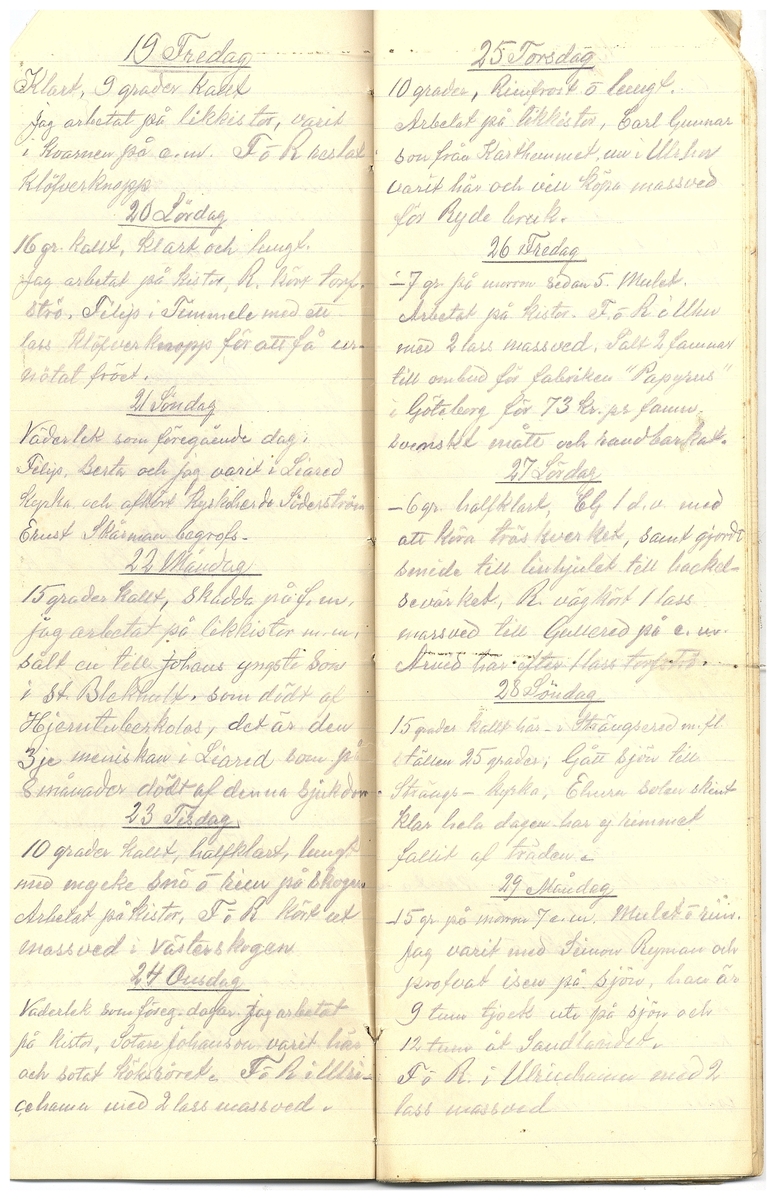 19 Fredag
Klart, 9 grader kallt
jag arbetat på likkistor, varit
i kvarnen på e.m. F o R
klöfverknopp
20 Lördag
16 gr. kallt, klart och lungt.
jag arbetat på kistor, R. kört torf-
strö. Filip i Timmele med ett
lass klöfverknopp för att få ur-
nötat fröet.
21 Söndag
Väderlek som föregående dag.
Filip, Berta och jag varit i Liared
kyrka och afhört kyskoherde Söderström
Ernst Skårman begrofs.
22 Måndag
15 grader kallt, skadda på f.m.
jag arbetat på likkistor m.m.
sålt en till Johans yngste son
i St Blekhult. som dödt af
Hjerntuberkolos, det är den
3je meniskan i Liared som på
8 månader dödt af denna sjukdom
23 Tisdag
10 grader kallt, halfklart, lungt
med mycke snö o rim på skogen
Arbetat på kistor, F o R kört ut
massved i västerskogen
24 Onsdag
Väderlek som föreg. dagar. jag arbetat
på kistor, Sotare Johanson varit här
och sotat köksröret. F o R i Ulri-
cehamn med 2 lass massved.
25 Torsdag
10 grader, Rimfrost o lungt.
Arbetat på likkistor, Carl Gunnar
son från Karthemmet, nu i Ulrhn
varit här och vill köpa massved
för Ryde bruk.
26 Fredag
-7 gr. på morron sedan 5. Mulet.
Arbetat på kistor. F. o R i Uhn
med 2 lass massved. Sålt 2 famnar
till ombud för fabriken "Papyrus"
i Göteborg för 73 kr. pr famn.
svenskt mått och handbarkat.
27 Lördag
-6 gr. halfklart, Elj 1 d.v. med
att köra tröskverket, samt gjordt
smide till linhjulet till hackel-
severket, R. vägkört 1 lass
massved till Gullered på e.m.
Arvid här efter 1 lass torfströ.
28 Söndag
15 grader kallt här - i Strängsered m.fl
ställen 25 grader, Gått sjön till
Strängs- kyrka, Ehuru solen skint
klar hela dagen har ej rimmet
fallit af träden.
29 Måndag
-15 gr på morron 7 e.m. Mulet o rim.
Jag varit med Simon Ryman och
profvat isen på sjön, han är
9 tum tjock ute på sjön och
12 tum åt Sandlandet.
F o R. i Ulricehamn med 2
lass massved